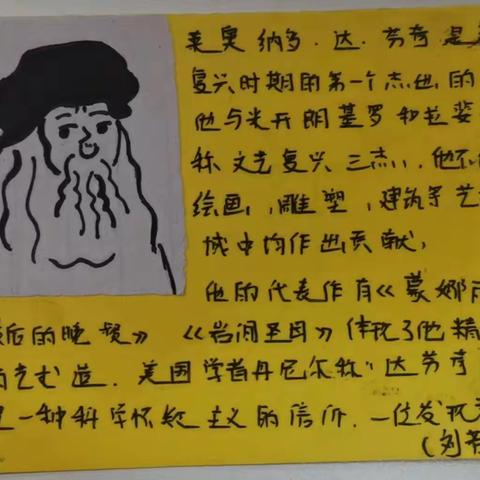 莱奥纳多.达.芬奇是
复兴时期的第一个杰出的
他与米开朗基罗和拉斐
称文艺复兴三杰,,他不
绘画,,雕塑,建筑等艺
域中均作出贡献,
他的代表作有《蒙娜丽
后的晚餐》《岩间圣母》体现了他精
艺术造.美国学者丹尼尔称"达芬奇
一种科学怀疑主义的信仰.一位发现
(刘